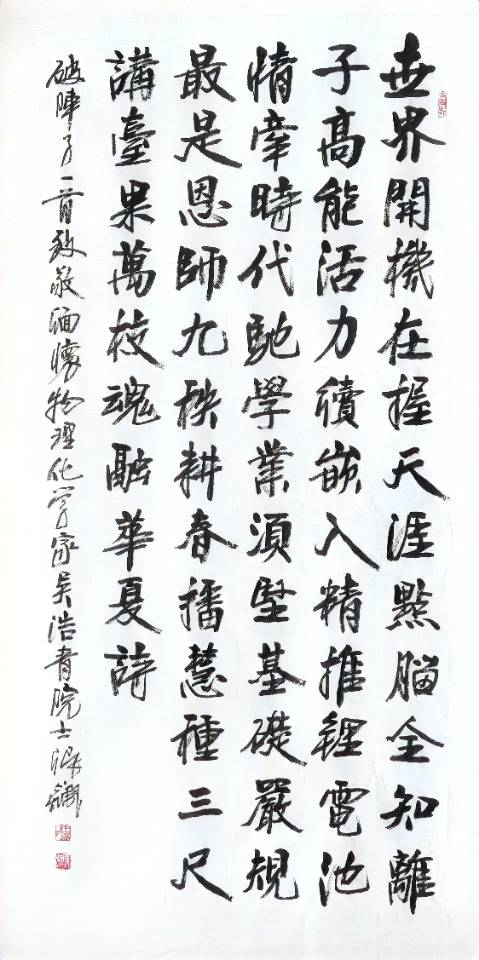 世界開機在握天涯點腦全知離
子高能活力續嵌入精推鋰電池
情牽時代馳學業須堅基礎嚴規
最是恩師九秩耕春播慧種三尺
講臺果萬枝魂融華夏詩
破陣子一首致敬緬懷物理化学家吴浩青院士